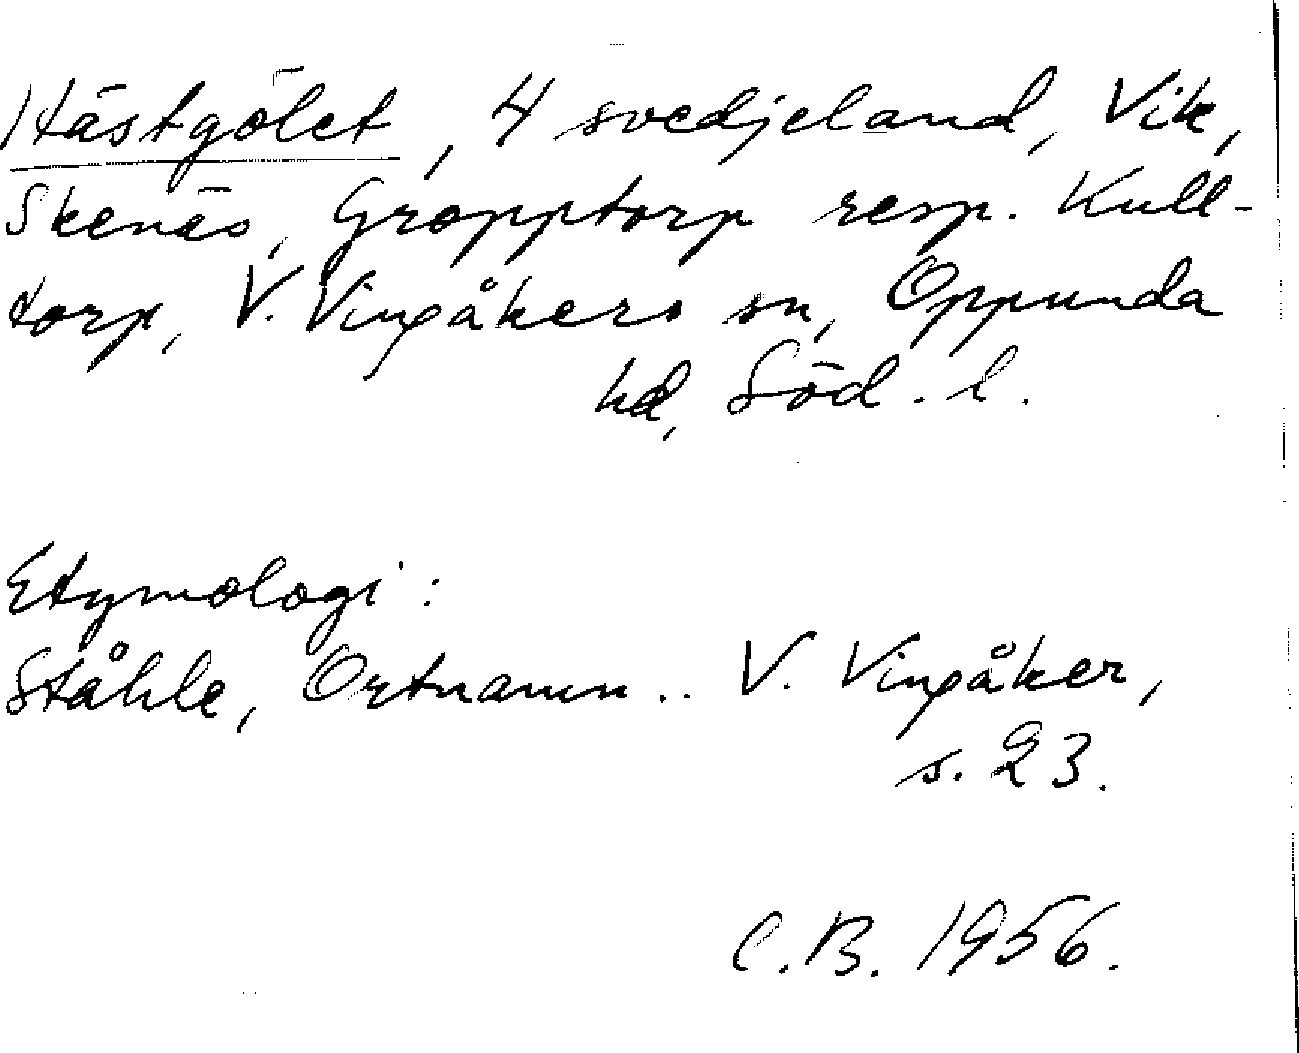 Hästgölet, 4 svedjeland, Vik,
Skenäs, Gropptorp resp. Kull-
torp, V. Vingåkers sn, Oppunda
hd, Söd. l.
Etymologi:
Ståhle, Ortnamn.. V. Vingåker,
s. 23.
C.B. 1956.